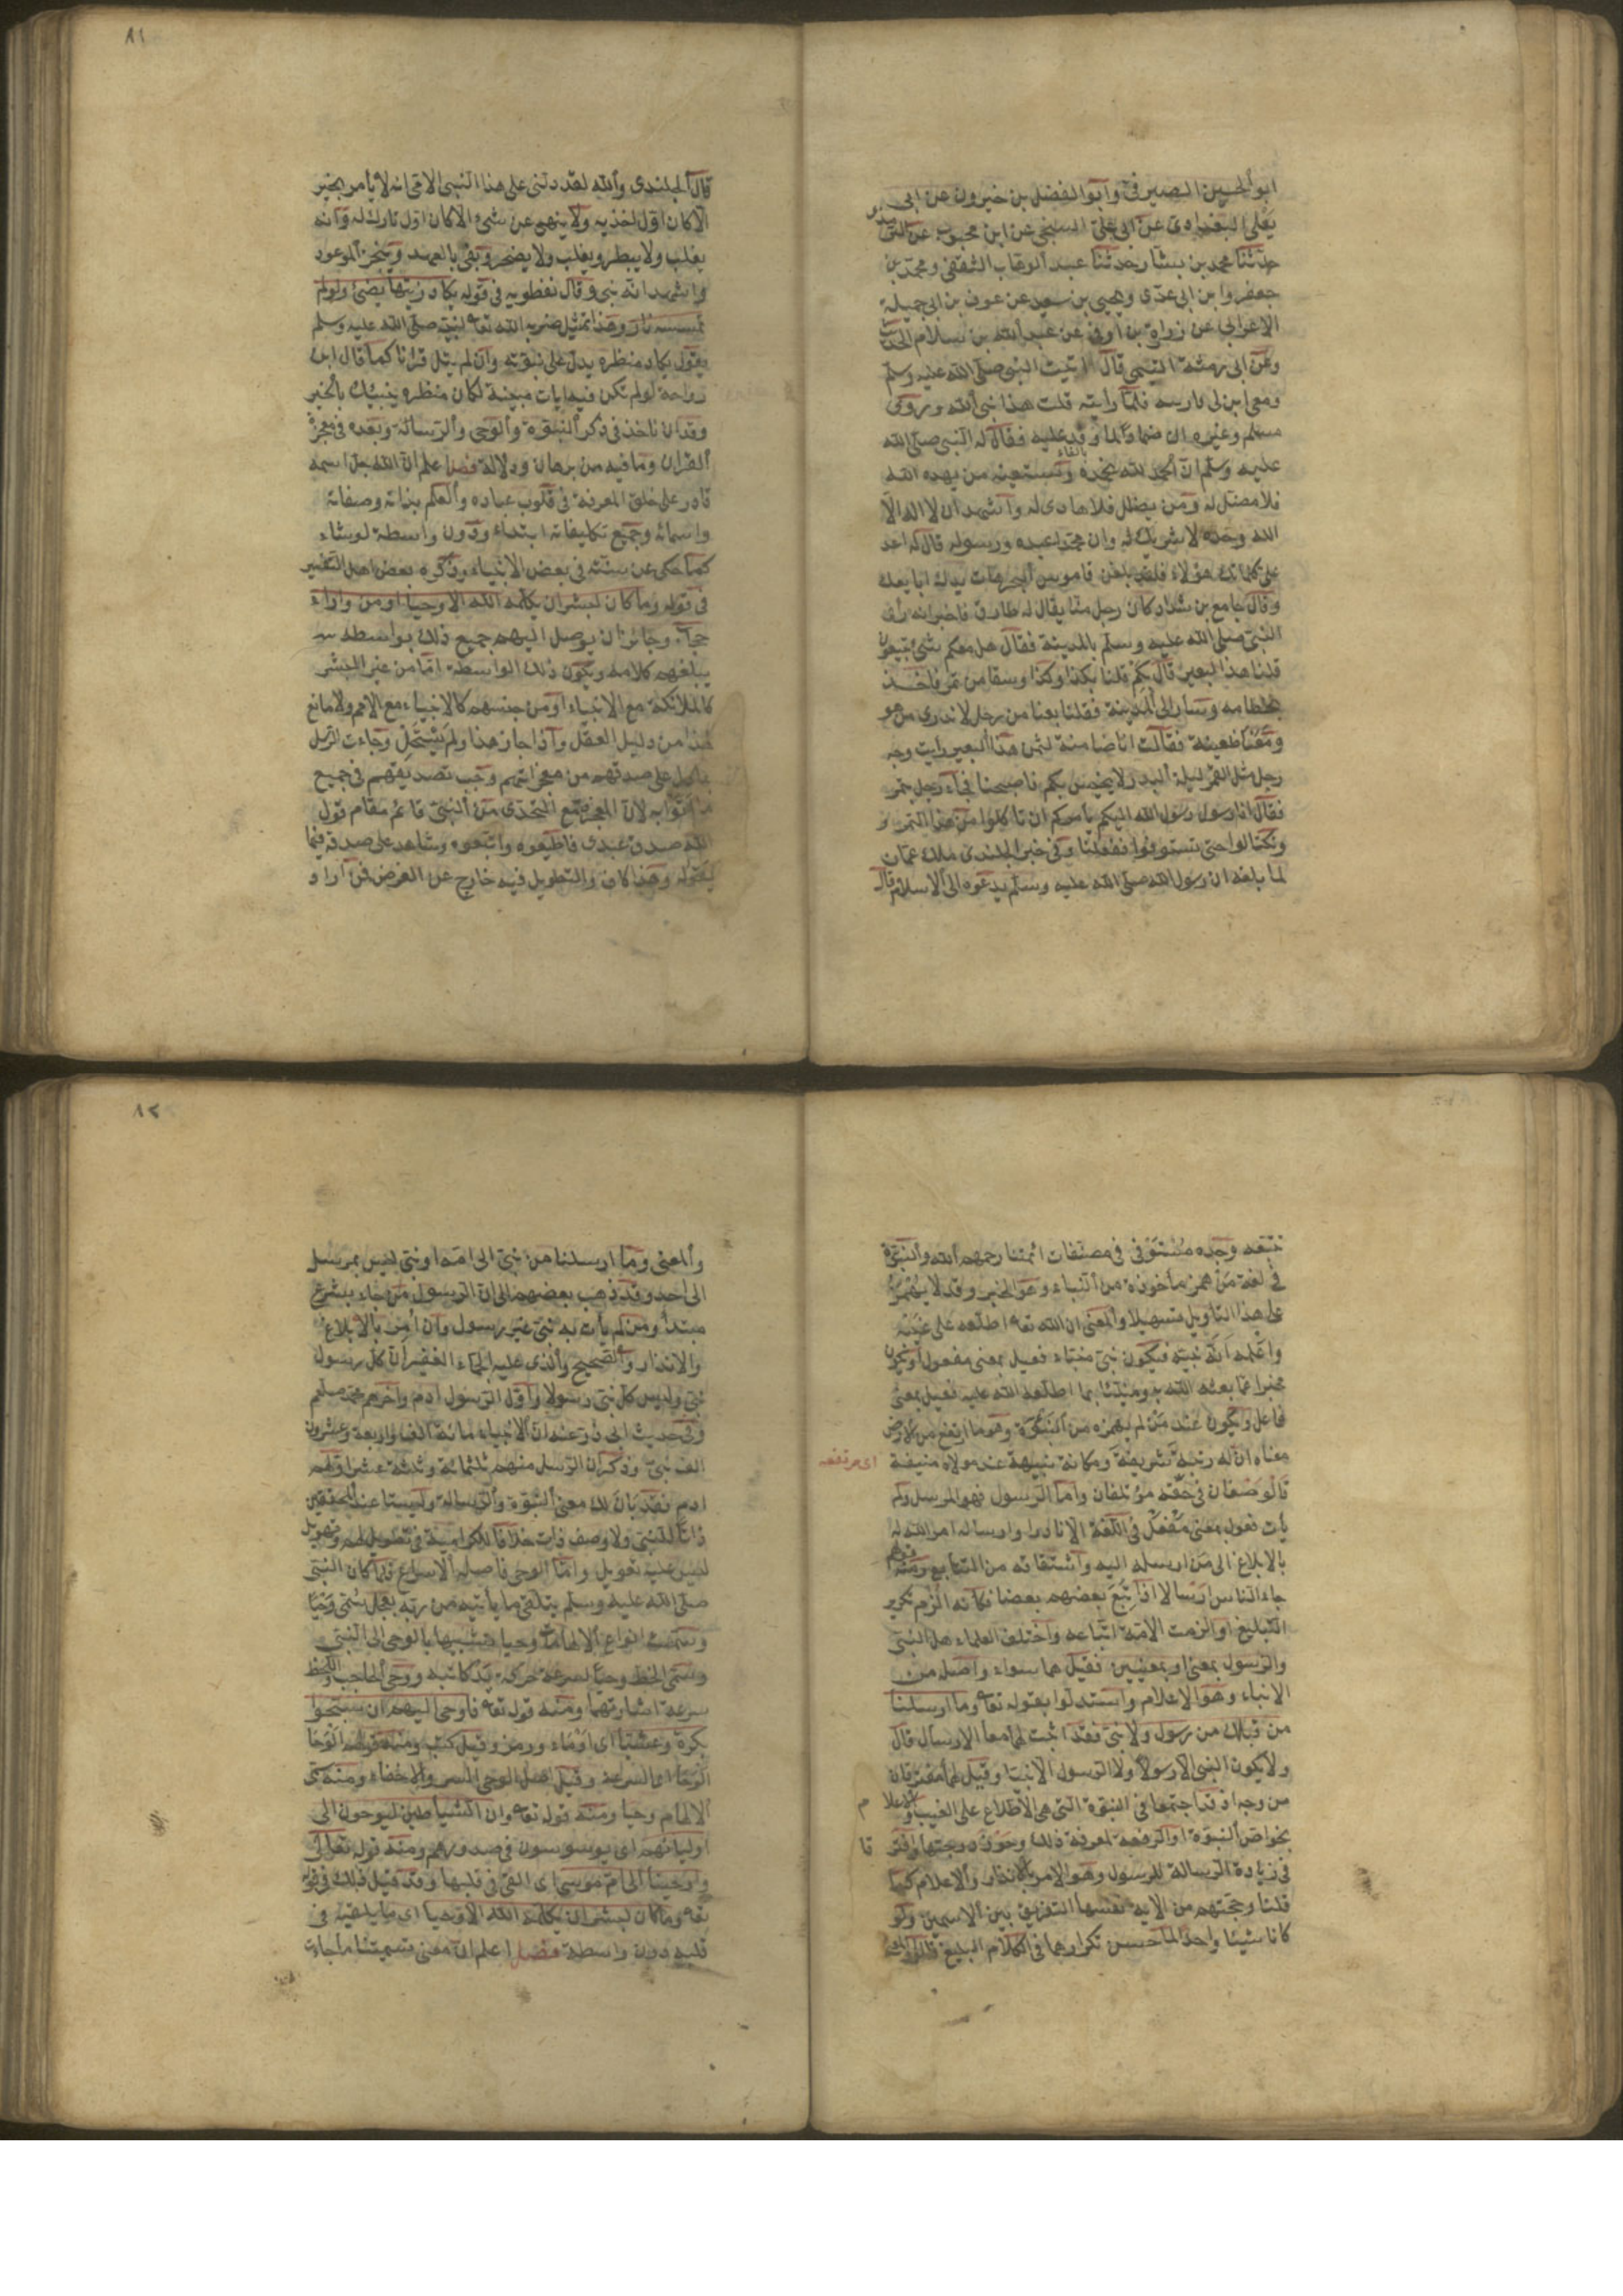 ابو الحسين الصيرفى وابو الفضل بن خيرون عن ابى
يعلى البغدادى عن ابى على السنجى عن ابن محبوب عن الترمذى
حدثنا محمد بن بشار حدثنا عبد الوهاب الثقفى ومحمد بن
جعفر وابن ابى عدى ويحيى بن سعيد عن عوف بن ابى جميلة
الاعرابى عن زرارة بن اوفى عن عبد الله بن سلام الحديث
وعن ابى رمثة التيمى قال اتيت النبى صلى الله عليه وسلم
ومعى ابن لى فاريته فلما رايته قلت هذا نبى الله وروى
مسلم وغيره ان ضمادا لما وفد عليه فقال له النبى صلى الله
عليه وسلم ان الحمد لله نحمده ونستعينه من يهده الله
فلا مضل له ومن يضلل فلا هادى له واشهد ان لا اله الا
الله وحده لا شريك له وان محمدا عبده ورسوله قال له اعد
على كلماتك هؤلاء فلقد بلغن قاموس البحر هات يدك ابايعك
وقال جامع بن شداد كان رجل منا يقال له طارق فاخبر انه راى
النبى صلى الله عليه وسلم بالمدينة فقال هل معكم شئ تبيعونه
قلنا هذا البعير قال بكم قلنا بكذا وكذا وسقا من تمر فاخذ
بخطامه وسار الى المدينة فقلنا بعنا من رجل لا ندرى من هو
ومعنا ظعينة فقالت انا ضامنة لثمن هذا البعير رايت وجه
رجل مثل القمر ليلة البدر لا يخيس بكم فاصبحنا فجاء رجل بتمر
فقال انا رسول رسول الله اليكم يأمركم ان تاكلوا من هذا التمر و
وتكتالوا حتى تستوفوا ففعلنا وفى خبر الجلندى ملك عمان
لما بلغه ان رسول الله صلى الله عليه وسلم يدعوه الى الاسلام قال
٨١
قال الجلندى والله لقد دلنى على هذا النبى الامى انه لا يأمر بخير
الا كان اول اخذ به ولا ينهى عن شئ الا كان اول تارك له وانه
يغلب ولا يبطر ويغلب ولا يضجر ويفى بالعهد وينجز الموعود
واشهد انه نبى وقال نفطويه فى قوله يكاد زيتها يضئ ولو لم
تمسسه نار وهذا تمثيل ضربه الله تعا لنبيه صلى الله عليه وسلم
يقول يكاد منظره يدل على نبوته وان لم يتل قرانا كما قال ابن
رواحة لو لم تكن فيه ايات مبينة لكان منظره ينبيك بالخبر
وقد ان ناخذ فى ذكر النبوة والوحى والرسالة وبعده فى معجزة
القران وما فيه من برهان ودلالة فصل اعلم ان الله جل اسمه
قادر على خلق المعرفة فى قلوب عباده والعلم بذاته وصفاته
واسمائه وجميع تكليفاته ابتداء ودون واسطة لو شاء
كما حكى عن سنته فى بعض الانبياء وذكره بعض اهل التفسير
فى قوله وما كان لبشر ان يكلمه الله الا وحيا او من وراء
حجاب وجائز ان يوصل اليهم جميع ذلك بواسطة
يبلغهم كلامه ويكون ذلك الواسطة اما من غير البشر
كالملائكة مع الانبياء او من جنسهم كالانبياء مع الامم ولا مانع
لهذا من دليل العقل واذا جاز هذا ولم يستحل وجاءت الرسل
بما دل على صدقهم من معجزاتهم وجب تصديقهم فى جميع
ما اتوا به لان المعجز مع التحدى من النبى قائم مقام قول
الله صدق عبدى فاطيعوه واتبعوه وشاهد على صدقه فيما
يقوله وهذا كاف والتطويل فيه خارج عن الغرض فمن اراد
تتبعه وجده مستوفى فى مصنفات ائمتنا رحمهم الله والنبوة
فى لغة من همز مأخوذة من النباء وهو الخبر وقد لا يهمز
على هذا التاويل تسهيلا والمعنى ان الله تعا اطلعه على غيبه
واعلمه انه نبيه فيكون نبئ منباء فعيل بمعنى مفعول او يكون
مخبرا عما بعثه الله به ومنبئا بما اطلعه الله عليه فعيل بمعنى
فاعل ويكون عند من لم يهمزه من النبوة وهو ما ارتفع من الارض
معناه ان له رتبة شريفة ومكانة نبيهة عند مولاه منيفة
اى مرتفعه
فالوصفان فى حقه مؤتلفان واما الرسول فهو المرسل ولم
يأت فعول بمعنى مفعل فى اللغة الا نادرا وارساله امر الله له
بالابلاغ الى من ارسله اليه واشتقاقه من التتابع ومنه قولهم
جاء الناس ارسالا اذا تبع بعضهم بعضا فكانه الزم تكرير
التبليغ او الزمت الامة اتباعه واختلف العلماء هل النبى
والرسول بمعنى او بمعنيين فقيل هما سواء واصله من
الانباء وهو الاعلام واستدلوا بقوله تعا وما ارسلنا
من قبلك من رسول ولا نبى فقد اثبت لهما معا الارسال قال
ولا يكون النبى الا رسولا ولا الرسول الا نبيا وقيل هما مفترقان
من وجه اذ قد اجتمعا فى النبوة التى هى الاطلاع على الغيب والاعلام
بخواص النبوة او الرفعة لمعرفة ذلك وحوز درجتها وافترقا
فى زيادة الرسالة للرسول وهو الامر بالانذار والاعلام كما
قلنا وحجتهم من الاية نفسها التفريق بين الاسمين ولو
كانا شيئا واحدا لما حسن تكرارهما فى الكلام البليغ قالوا
٨٢
والمعنى وما ارسلنا من نبى الى امة او نبى ليس بمرسل
الى احد وقد ذهب بعضهم الى ان الرسول من جاء بشرع
مبتدأ ومن لم يأت به نبى غير رسول وان امر بالابلاغ
والانذار والصحيح والذى عليه الجماء الغفير ان كل رسول
نبى وليس كل نبى رسولا واول الرسول ادم واخرهم محمد صلعم
وفى حديث ابى ذر عنه ان الانبياء مائة الف واربعة وعشرون
الف نبى وذكر ان الرسل منهم ثلثمائة وثلثة عشر اولهم
ادم فقد بان لك معنى النبوة والرسالة وليستا عند المحققين
ذاتا للنبى ولا وصف ذات خلافا للكرامية فى تطويل لهم وتهويل
ليس عليه تعويل واما الوحى فاصله الاسراع فلما كان النبى
صلى الله عليه وسلم يتلقى ما يأتيه من ربه بعجل سمى وحيا
وسميت انواع الالهامات وحيا تشبيها بالوحى الى النبى
وسمى الخط وحيا لسرعة حركة يد كاتبه ووحى الحاجب واللحظ
سرعة اشارتهما ومنه قوله تعا فاوحى اليهم ان سبحوا
بكرة وعشيا اى اومأ ورمز وقيل كتب ومنه قولهم الوحا
الوحا اى السرعة وقيل اصل الوحى السر والاخفاء ومنه سمى
الالهام وحيا ومنه قوله تعا وان الشياطين ليوحون الى
اوليائهم اى يوسوسون فى صدورهم ومنه قوله تعالى
واوحينا الى ام موسى اى القى فى قلبها وقد قيل ذلك فى قوله
تعا وما كان لبشر ان يكلمه الله الا وحيا اى ما يلقيه فى
قلبه دون واسطة فصل اعلم ان معنى تسميتنا ما جاءت